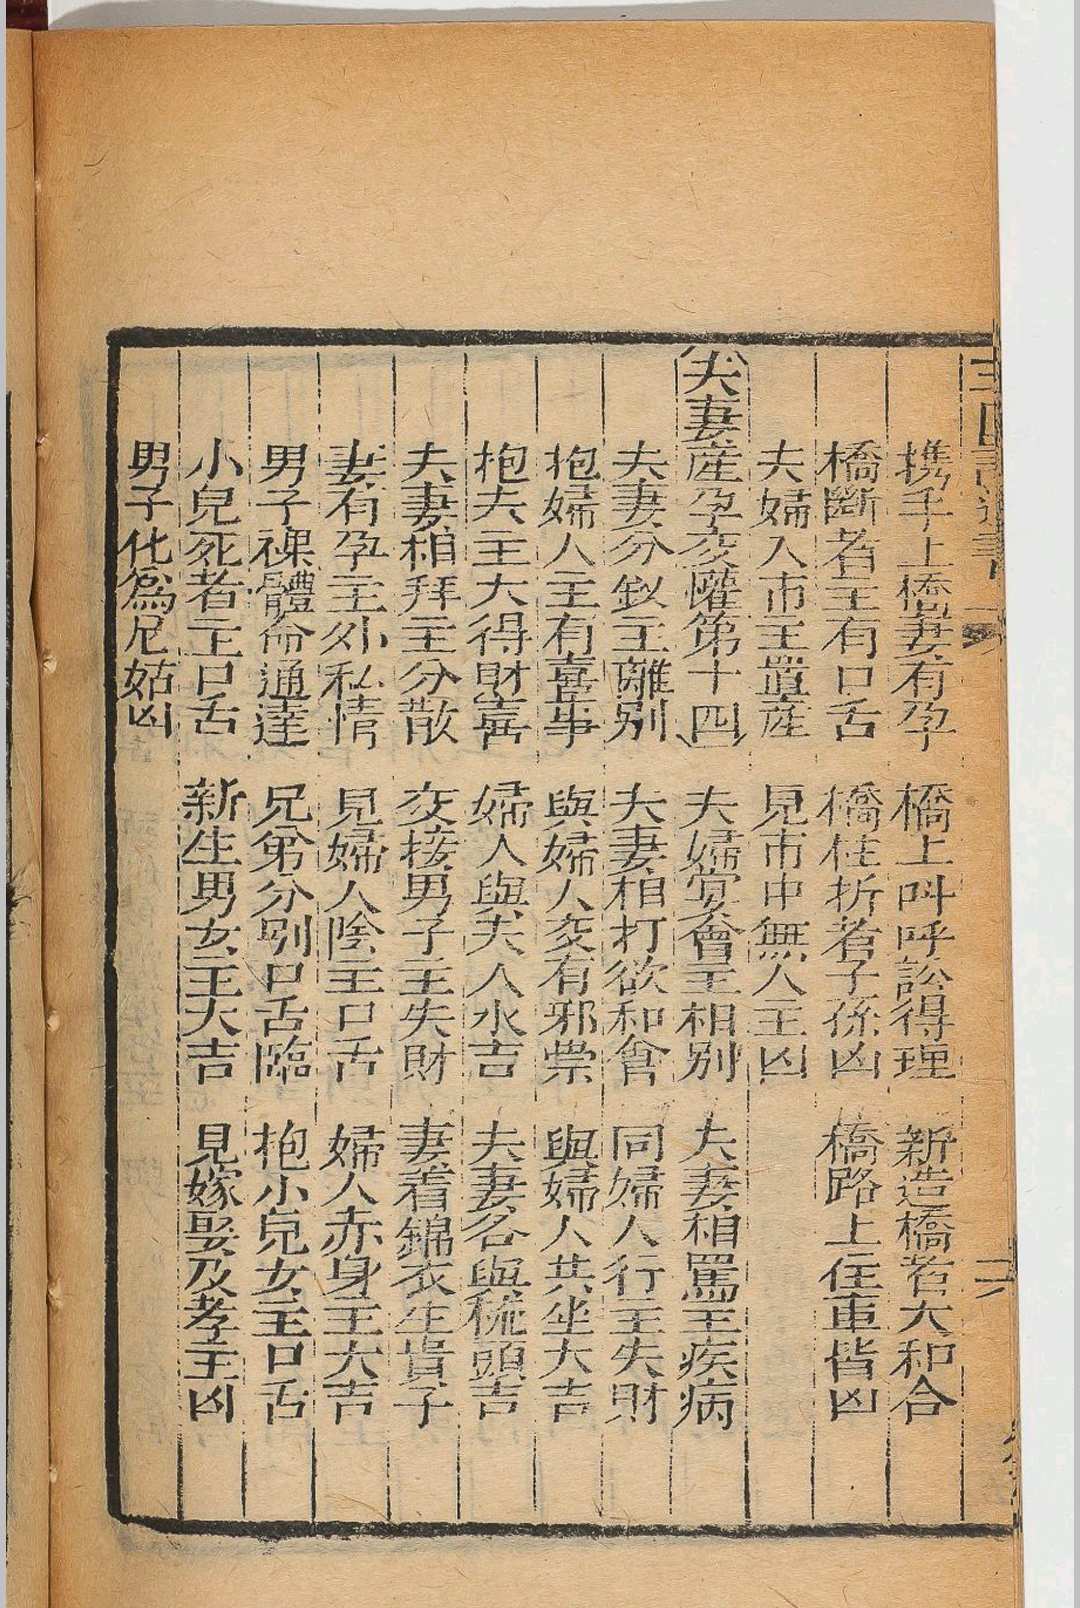 携手上橋妻有孕　橋上叫呼訟得理　新造橋者大和合
橋斷者主有口舌　橋柱折者子孫凶　橋路上住車皆凶
夫婦入市主置産　見市中無人主凶
夫妻産孕交懽第十四　夫婦宴會主相別　夫妻相罵主疾病
夫妻分釵主離别　夫妻相打欲和會　同婦人行主失財
抱婦人主有喜事　與婦人交有邪祟　與婦人共坐大吉
抱夫主大得財喜　婦人與夫人水吉　夫妻各與梳頭吉
夫妻相拜主分散　交接男子主失財　妻着錦衣生貴子
妻有孕主外私情　見婦人陰主口舌　婦人赤身主大吉
男子裸體命通達　兄弟分别口舌臨　抱小兒女主口舌
小兒死者主口舌　新生男女主大吉　見嫁娶及孝主凶
男子化為尼姑凶